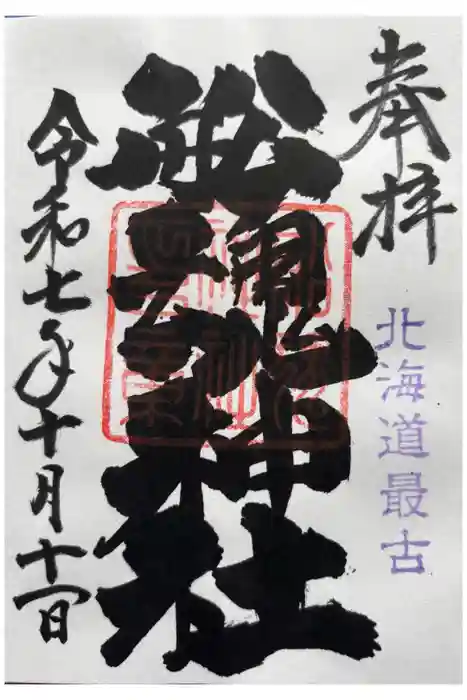 奉拝
北海道最古
船魂神社
令和七年十月十一日